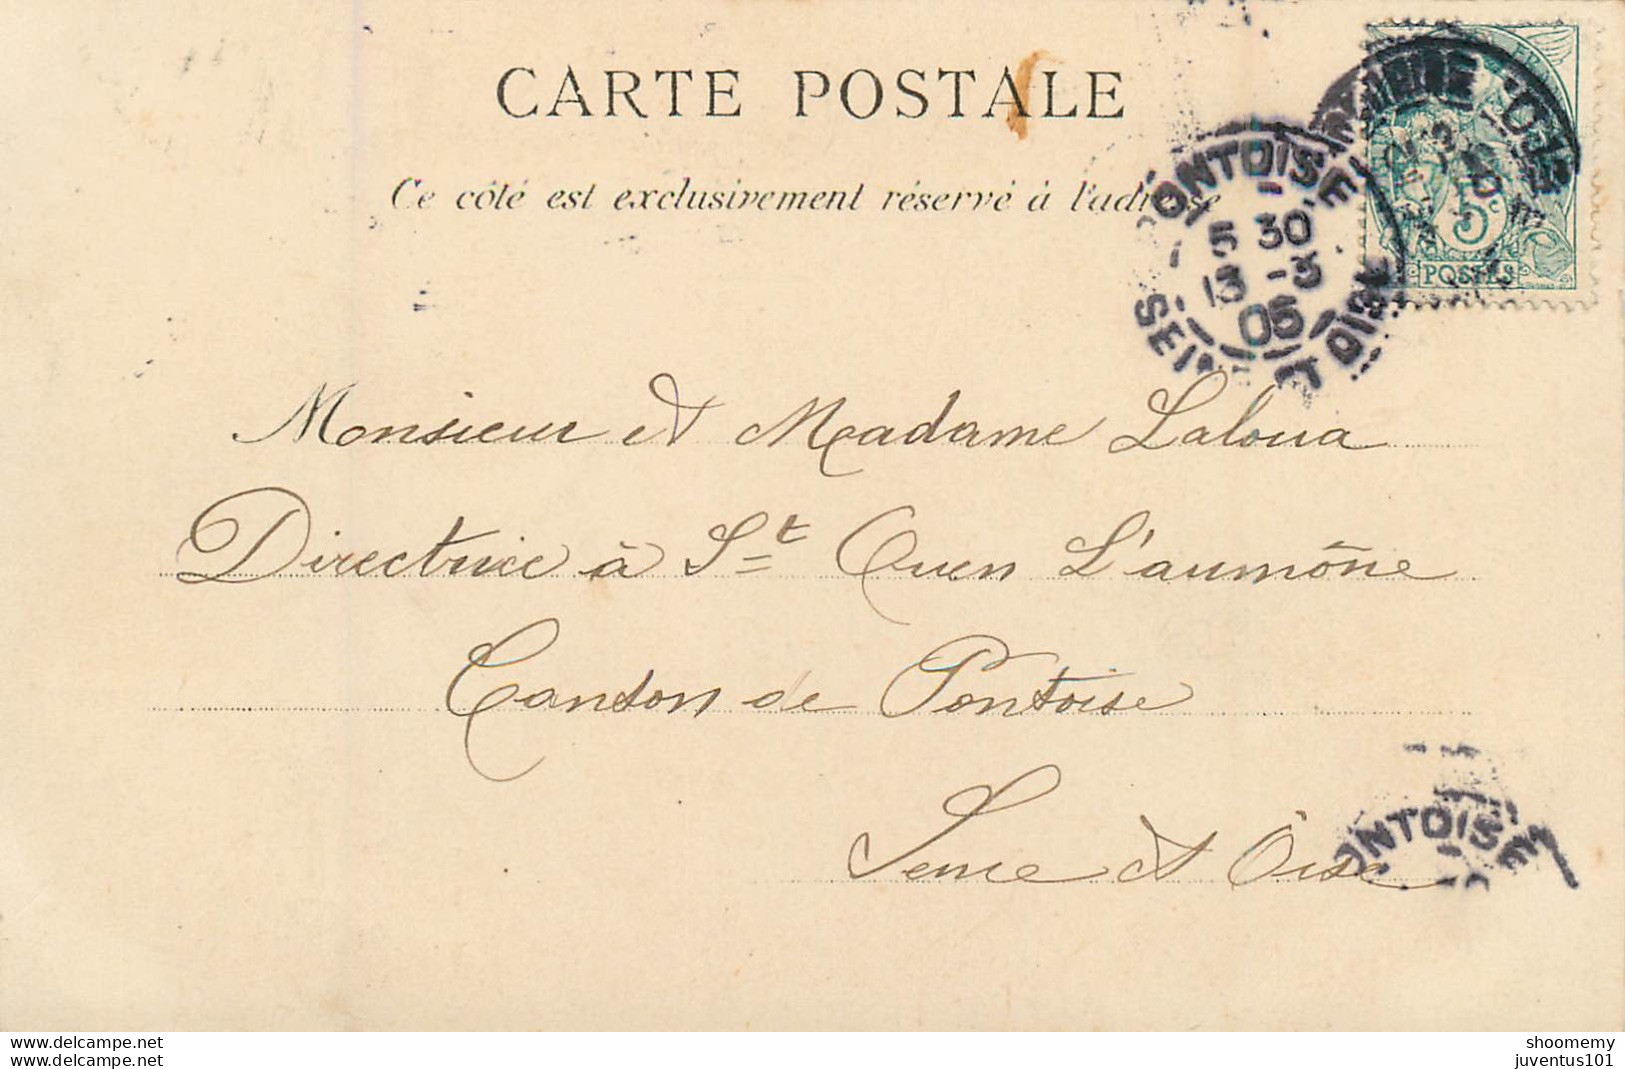 CARTE POSTALE
Ce côté est exclusivement réservé à l'adresse
PONTOISE
5 30
13 -3
05
SEINE ET OISE
5c
POSTES
Monsieur et Madame Laloua
Directrice à St Ouen L'aumône
Canton de Pontoise
Seine et Oise
ONTOISE
www.delcampe.net
www.delcampe.net
shoomemy
juventus101